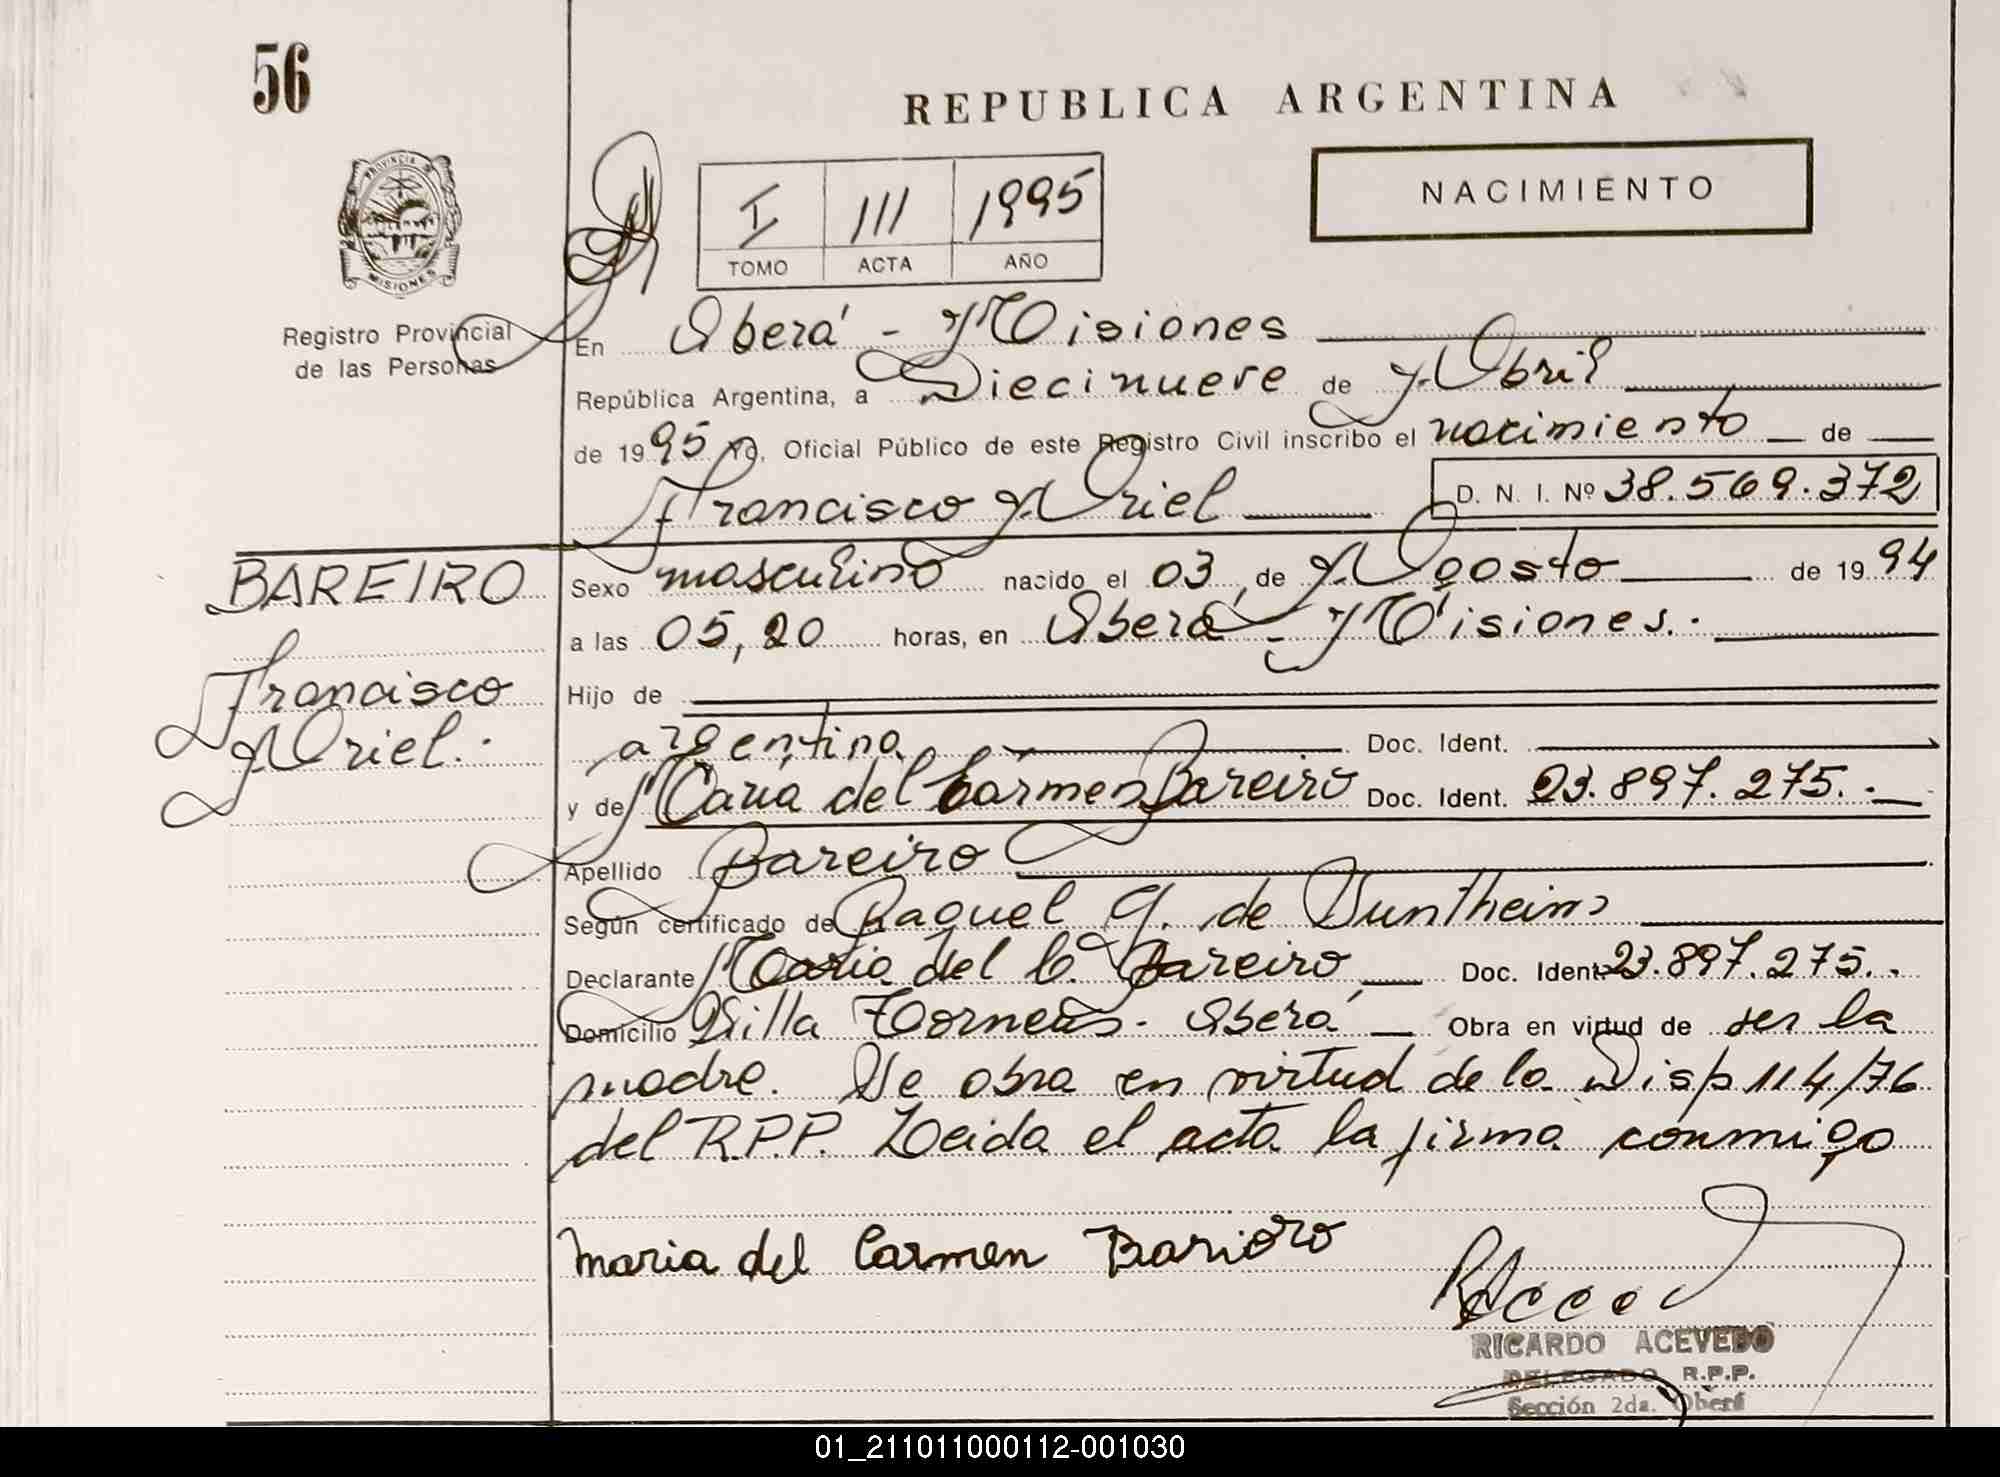 56
REPUBLICA ARGENTINA
PROVINCIA D
MISIONES
I 111 1995
TOMO ACTA AÑO
NACIMIENTO
Registro Provincial
de las Personas
En Oberá - Misiones
República Argentina, a Diecinueve de Abril
de 1995 Yo, Oficial Público de este Registro Civil inscribo el nacimiento de
Francisco Ariel D. N. I. Nº 38.569.372
BAREIRO
Francisco
Ariel.
Sexo masculino nacido el 03, de Agosto de 1994
a las 05,20 horas, en Oberá - Misiones.
Hijo de
argentina Doc. Ident.
y de María del Carmen Bareiro Doc. Ident. 23.897.275.
Apellido Bareiro
Según certificado de Raquel G. de
Declarante Maria del C. Bareiro Doc. Ident. 23.897.275.
Domicilio Villa Oberá Obra en virtud de ser la
madre. Se obra en virtud de la Disp 114/76
del R.P.P. Leida el acta la firma conmigo
maria del Carmen Barioro
RICARDO ACEVEDO
DELEGADO R.P.P.
Sección 2da. Oberá
01_211011000112-001030